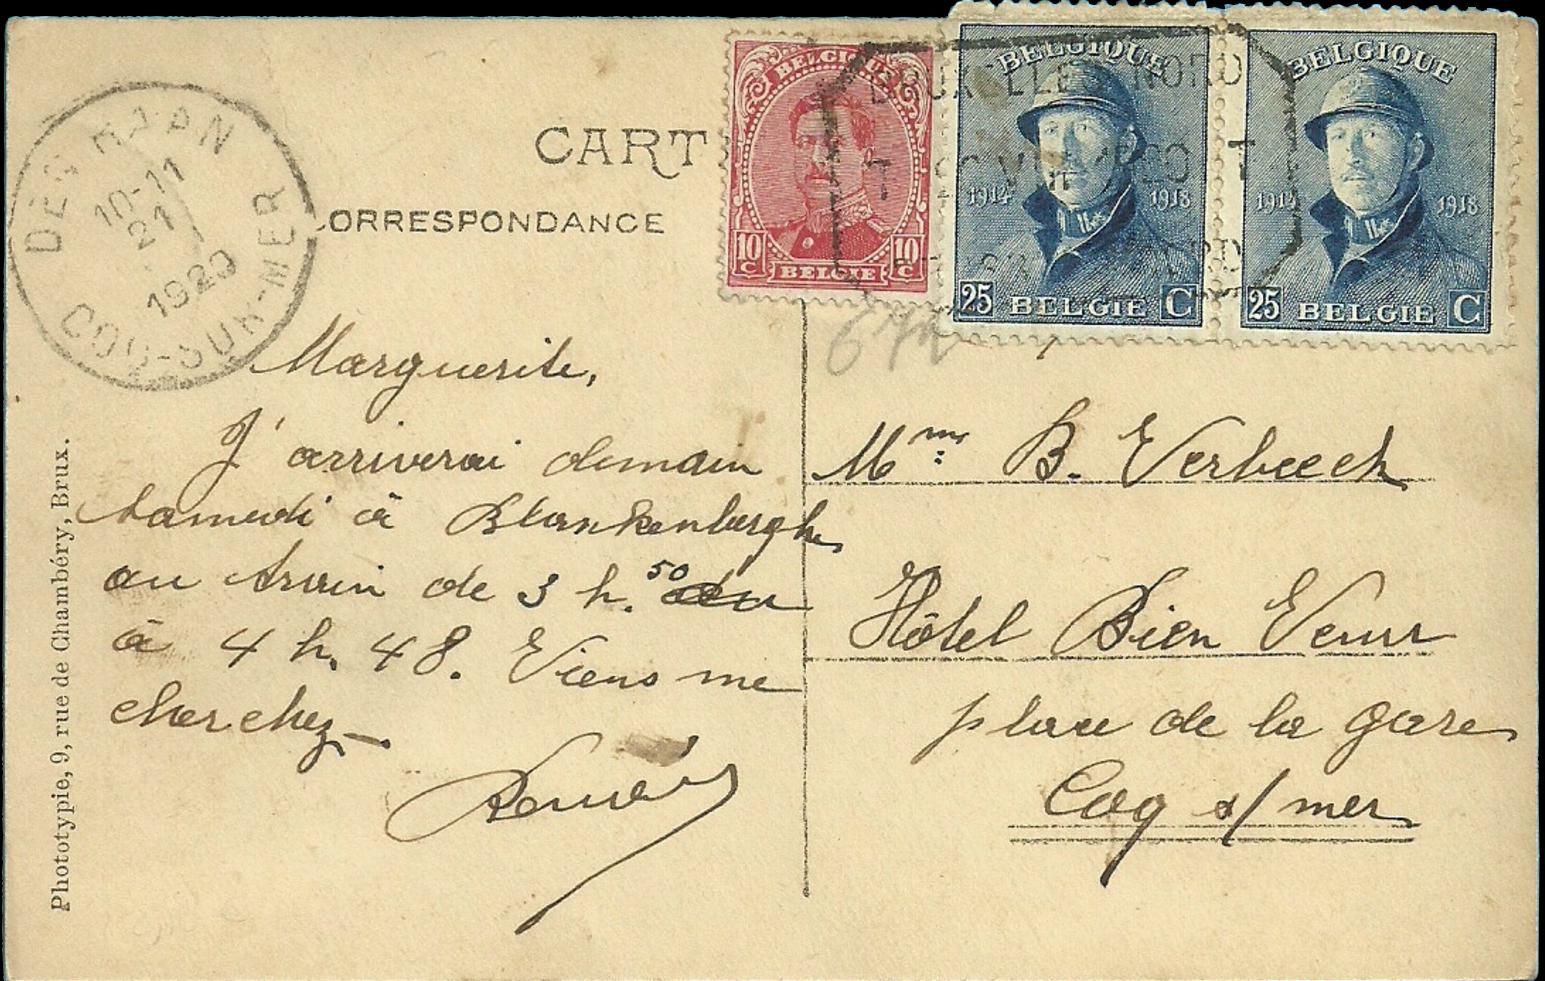 CART
CORRESPONDANCE
DE HAAN
10-11
21
1920
COQ-SUR-MER
BELGIQUE
10 C 10 C
BELGIE
BELGIQUE
1914 1918
25 BELGIE C
BELGIQUE
1914 1918
25 BELGIE C
BRUXELLES NORD
1920
Marguerite,
J'arriverai demain
samedi à Blankenberghe
au train de 3 h. 50
à 4 h. 48. Viens me
cherchez
Mme B. Verbeeck
Hôtel Bien Venu
place de la gare
Coq s/mer
Phototypie, 9, rue de Chambéry, Brux.